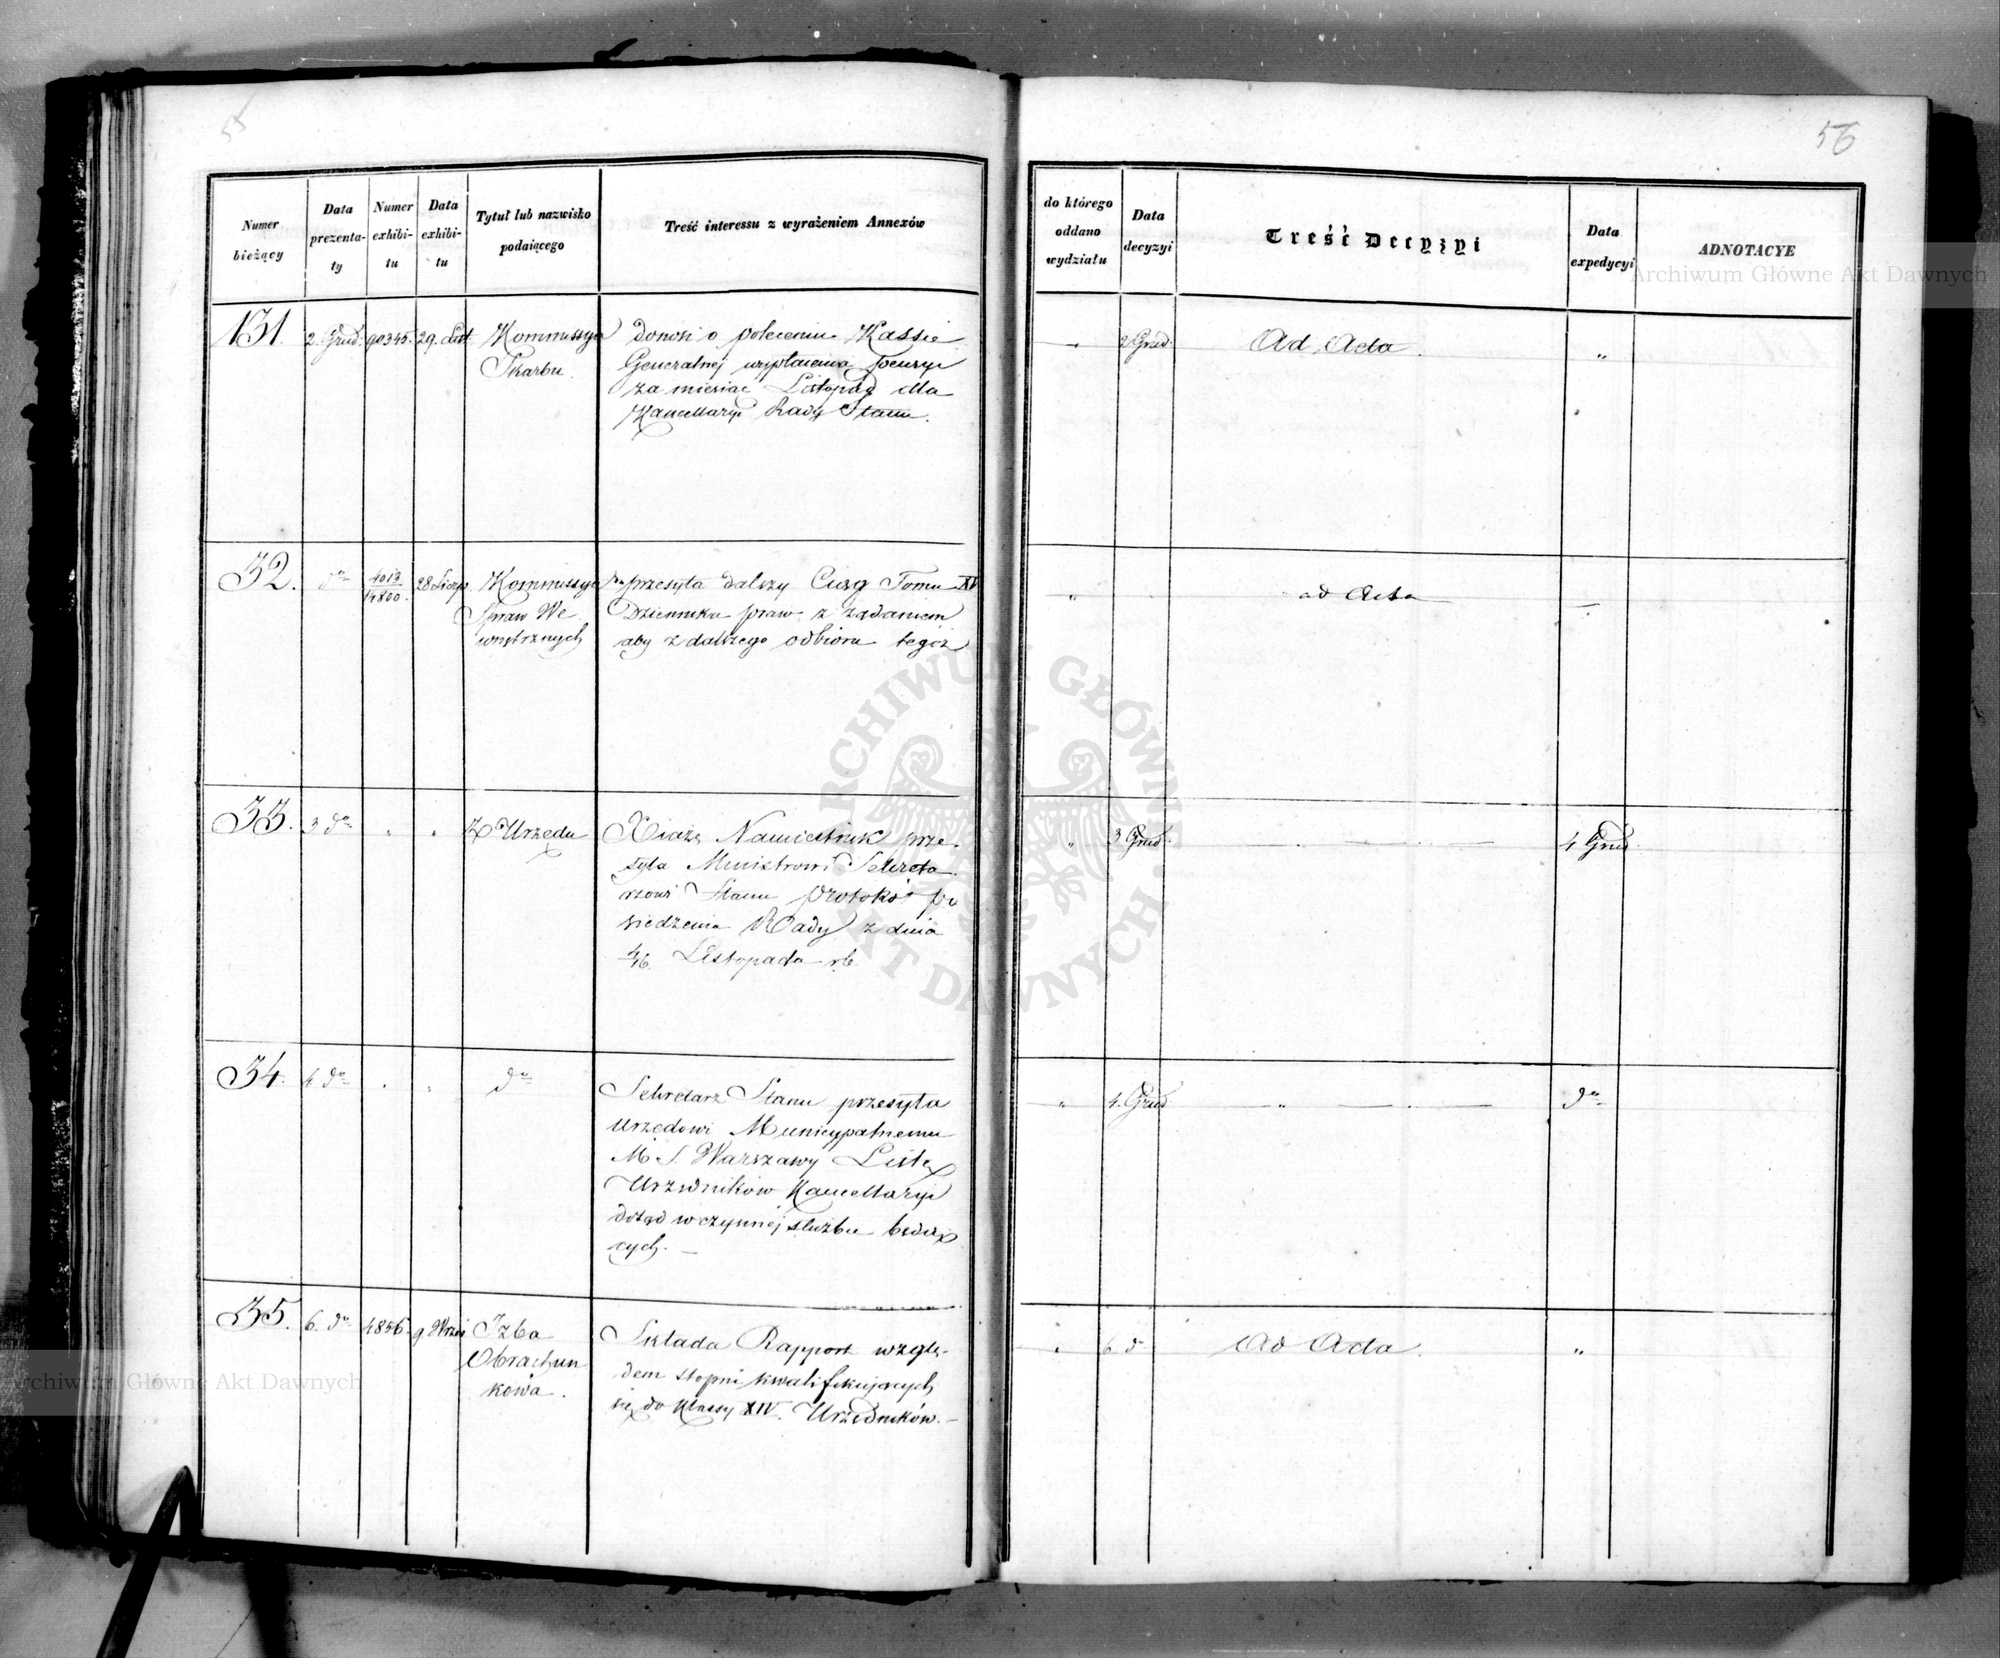 55
56
Numer bieżący
Data prezentaty
Numer exhibitu
Data exhibitu
Tytuł lub nazwisko podającego
Treść interessu z wyrażeniem Annexów
do którego oddano wydziału
Data decyzyi
Treść Decyzyi
Data expedycyi
ADNOTACYE
131.
2. Grud:
90345.
29. List
Kommissya
Skarbu.
Donosi o poleceniu Kassie
Generalnej wypłacenia
za miesiąc Listopad dla
Kancellaryi Rady Stanu.
2 Grud
Ad Acta.
"
32.
do
4013
14800.
Kommissya
Spraw We
wnętrznych
przesyła dalszy Ciąg Tomu XV
Dziennika praw z żądaniem
aby z dalszego odbioru tegóż
"
ad Acta
33.
3 do
"
"
Z Urzędu
Xiąże Namiestnik prze-
syła Ministrowi Sekreta
rzowi Stanu protokół po
siedzenia Rady z dnia
4/16. Listopada rb.
"
3 Grud.
4 Grud.
34.
4 do
do
Sekretarz Stanu przesyła
Urzędowi Municypalnemu
M. S. Warszawy Listę
Urzędników Kancellaryi
dotąd w czynnej służbie będą
cych. —
"
4. Grud
"
do
35.
6. do
4856.
9. Wrześ
Izba
Obrachun
kowa.
Składa Rapport wzglę-
dem stopni kwalifikujących
się do klassy XIV. Urzędników. —
"
6 d
Ad Acta.
"
Archiwum Główne Akt Dawnych
Archiwum Główne Akt Dawnych
ARCHIWUM GŁÓWNE AKT DAWNYCH